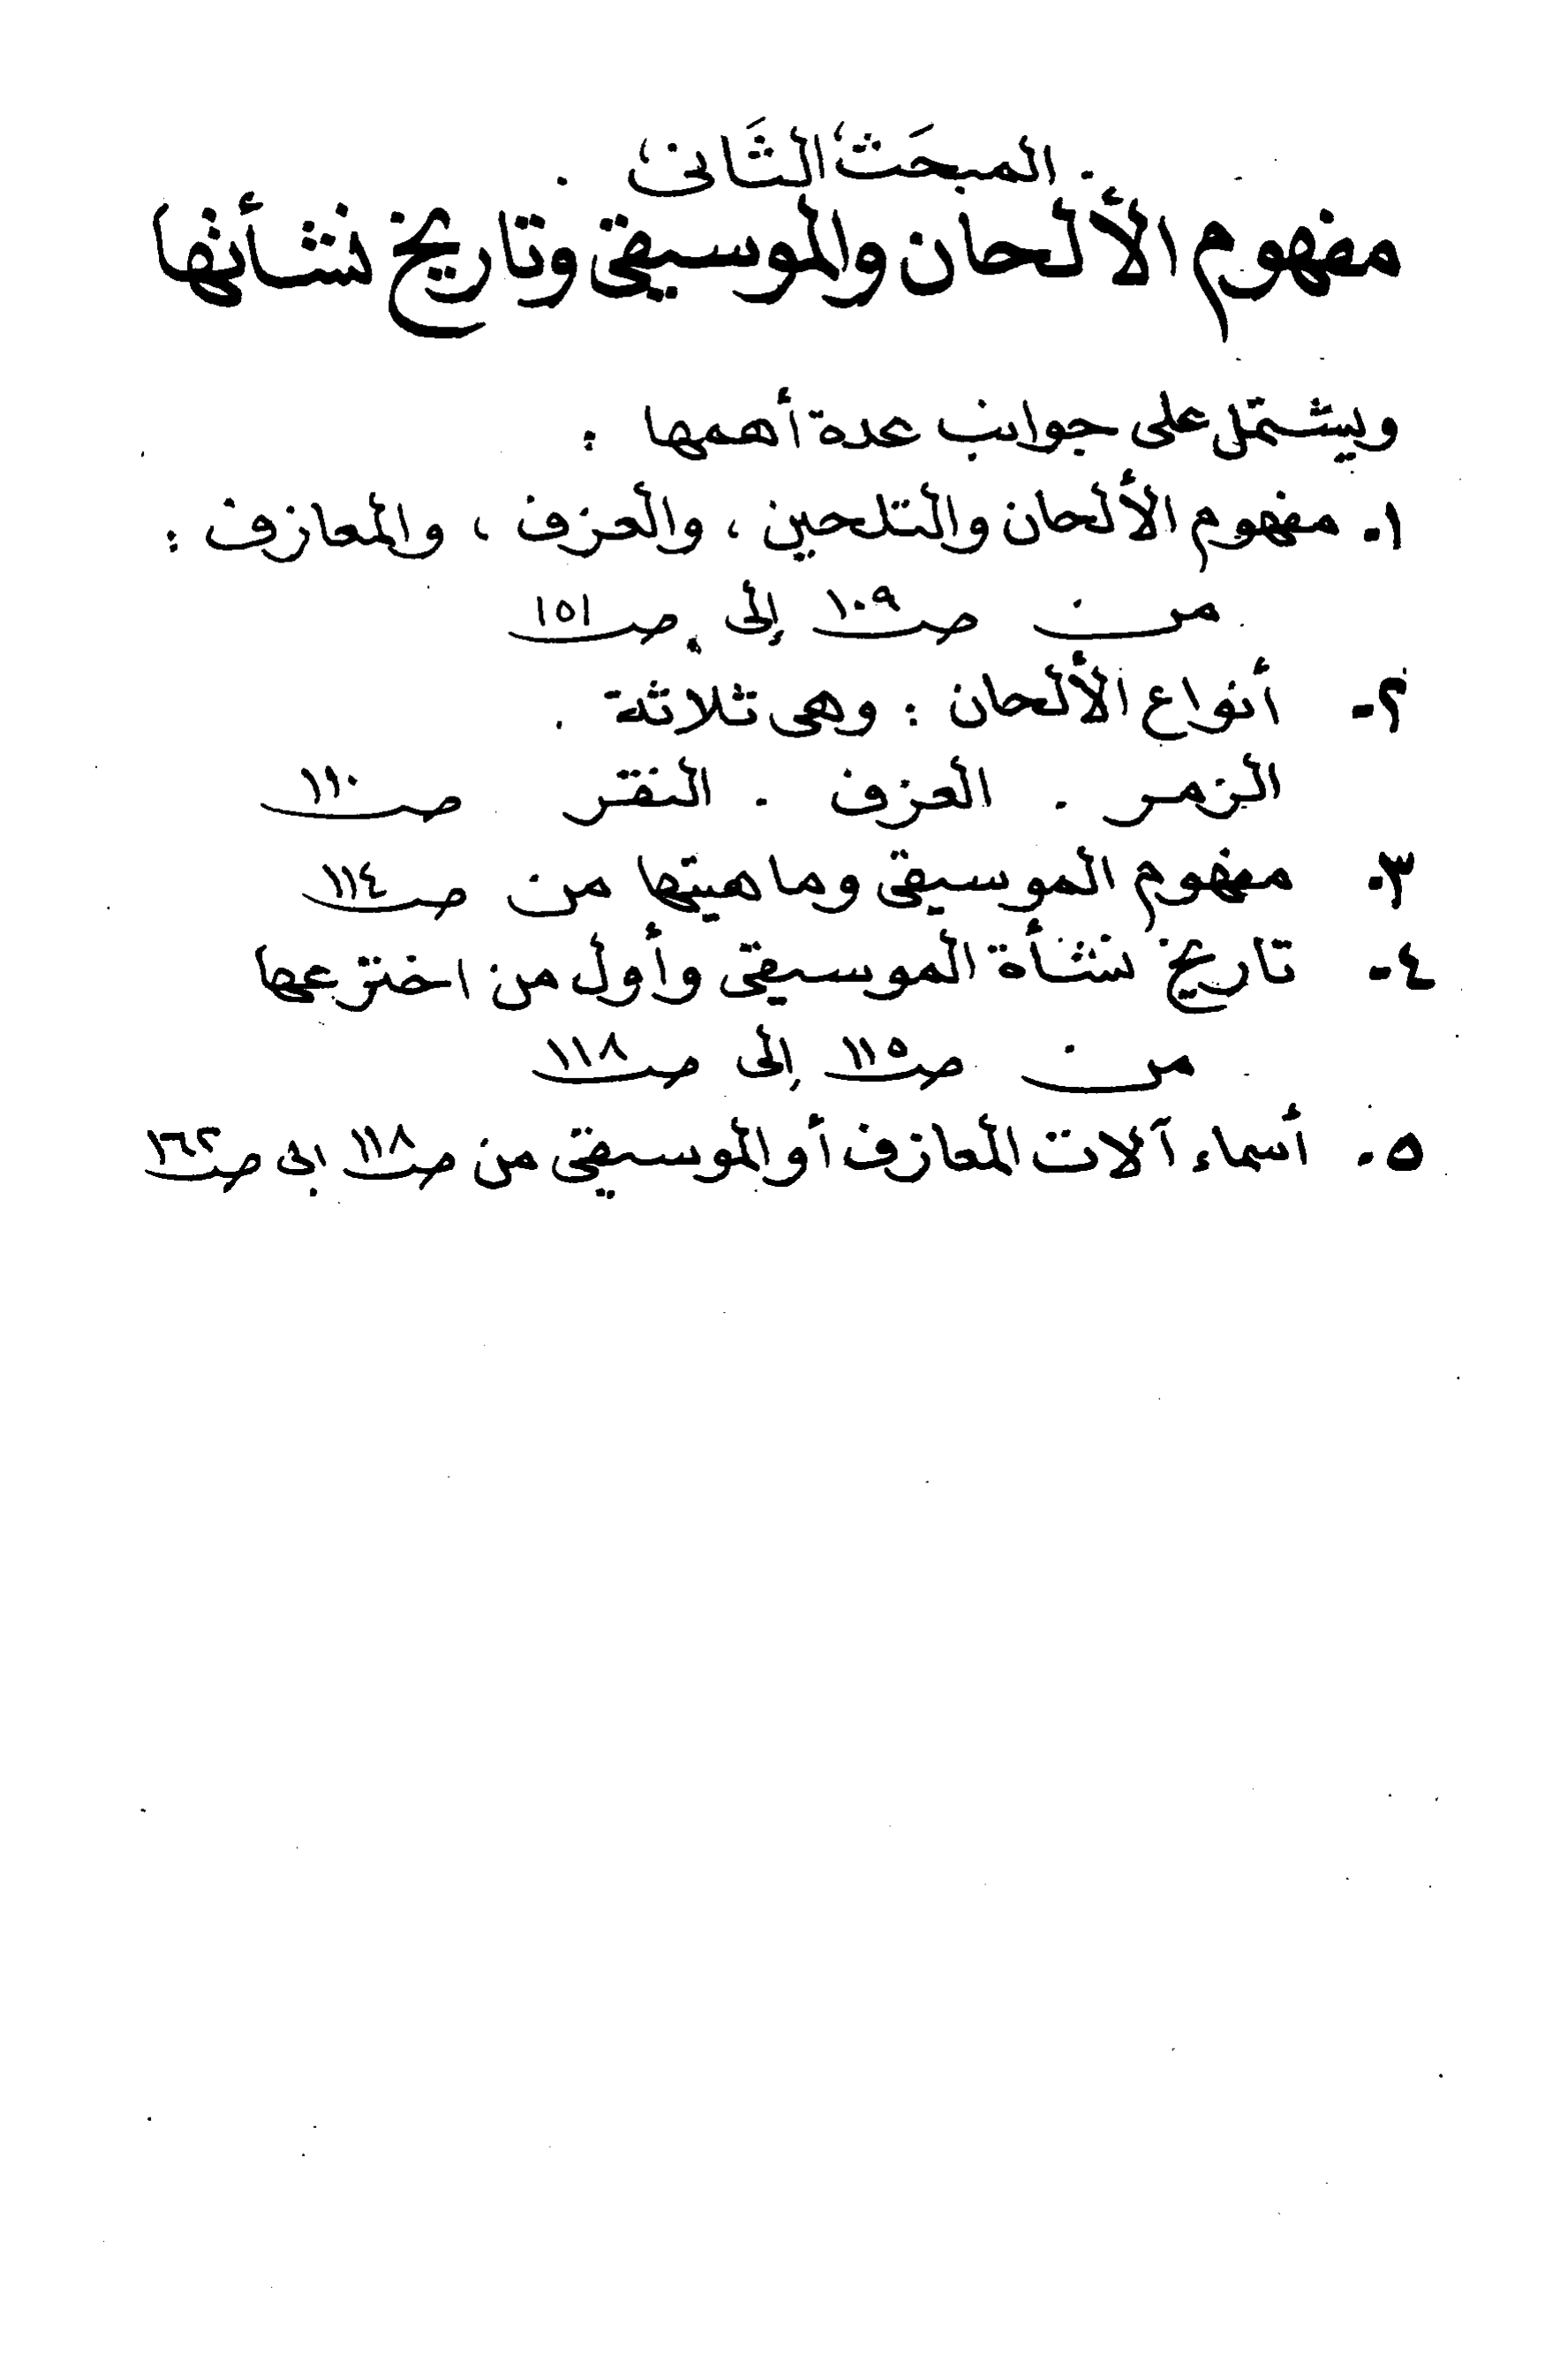 المبحَث الثَاني
مفهوم الألحان والموسيقى وتاريخ نشأتها
ويشتمل على جوانب عدة أهمها :
١- مفهوم الألحان والتلحين ، والعزف ، والمعازف :
من ص١٠٩ إلى ص١٥١
٢- أنواع الألحان : وهى ثلاثة .
الزمر . العزف . النقر ص١١٠
٣- مفهوم الموسيقى وماهيتها من ص١١٤
٤- تاريخ نشأة الموسيقى وأول من اخترعها
من ص١١٥ إلى ص١١٨
٥- أسماء آلات المعازف أو الموسيقى من ص١١٨ الى ص١٦٢